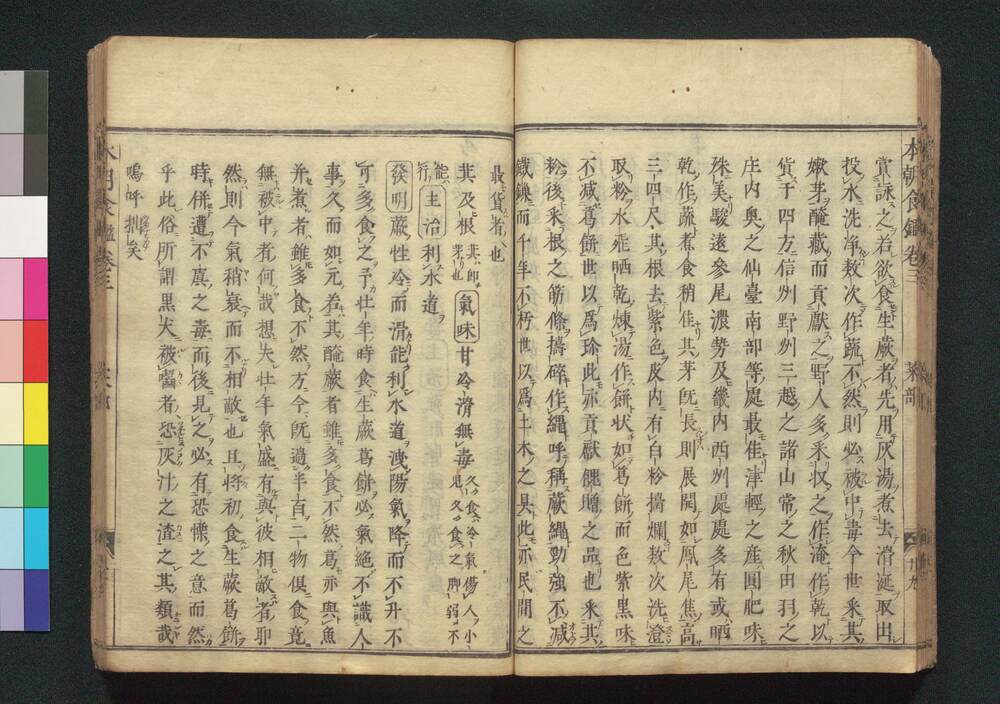 本朝食鑑 卷三 菜部 廿九
賞詠之若欲食生蕨者先用灰湯煮去滑涎取出
投水洗淨数次作蔬不然則必被中毒今世采其
嫩芽醃藏而貢献之野人多采収之作淹作乾以
貨于四方信州野州三越之諸山常之秋田羽之
庄内奥之仙臺南部等處最佳津輕之産圓肥味
殊美駿遠參尾濃勢及畿内西州處處多有或晒
乾作蔬煮食稍佳其芽既長則展開如鳳尾焦高
三四尺其根去紫色皮内有白粉擣爛数次洗澄
取粉水飛晒乾煉湯作餅状如葛餅而色紫黒味
不减葛餅世以爲珍此亦貢獻餽贈之品也采其
粉後采根之筋條擣碎作繩呼稱蕨繩勁強不减
鐵鎌而千年不朽世以爲土木之具此亦民間之
最貨者也
萁及根 萁即芽也 氣味 甘冷滑無毒 久食冷氣傷人小兒久食之脚弱不
能行 主治 利水道
發明 蕨性冷而滑能利水道洩陽氣降而不升不
可多食之予壮年時食生蕨葛餅必氣絶不識人
事久而如元若其醃蕨者雖多食不然葛亦與魚
并煮者雖多食不然方今既過半百二物倶食竟
無被中者何哉想夫壮年氣盛有與彼相敵者耶
然則今氣稍衰而不相敵也且將初食生蕨葛餅
時併遭不虞之毒而後見之必有恐慄之意而然
乎此俗所謂黒犬被噛者恐灰汁之渣之其類哉
嗚呼拙矣
本朝食鑑 卷三 菜部